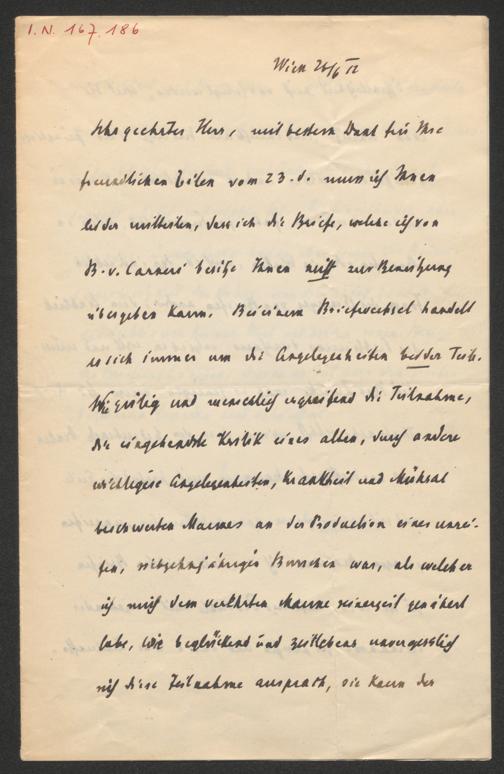 I.N. 167.186
Wien 26/6 12
Sehr geehrter Herr, mit bestem Dank für Ihre
freundlichen Zeilen vom 23. d. muss ich Ihnen
leider mitteilen, dass ich die Briefe, welche ich von
B. v. Carneri besitze Ihnen nicht zur Benützung
übergeben kann. Bei einem Briefwechsel handelt
es sich immer um die Angelegenheiten beider Teile.
Wie gütig und menschlich ergreifend die Teilnahme,
die eingehendste Kritik eines alten, durch andere
wichtigere Angelegenheiten, Krankheit und Mühsal
beschwerten Mannes an der Production eines unrei-
fen, siebzehnjährigen Burschen war, als welcher
ich mich dem verehrten Manne seinerzeit genähert
habe, wie beglückend und zeitlebens unvergesslich
mich diese Teilnahme ansprach, sie kann der